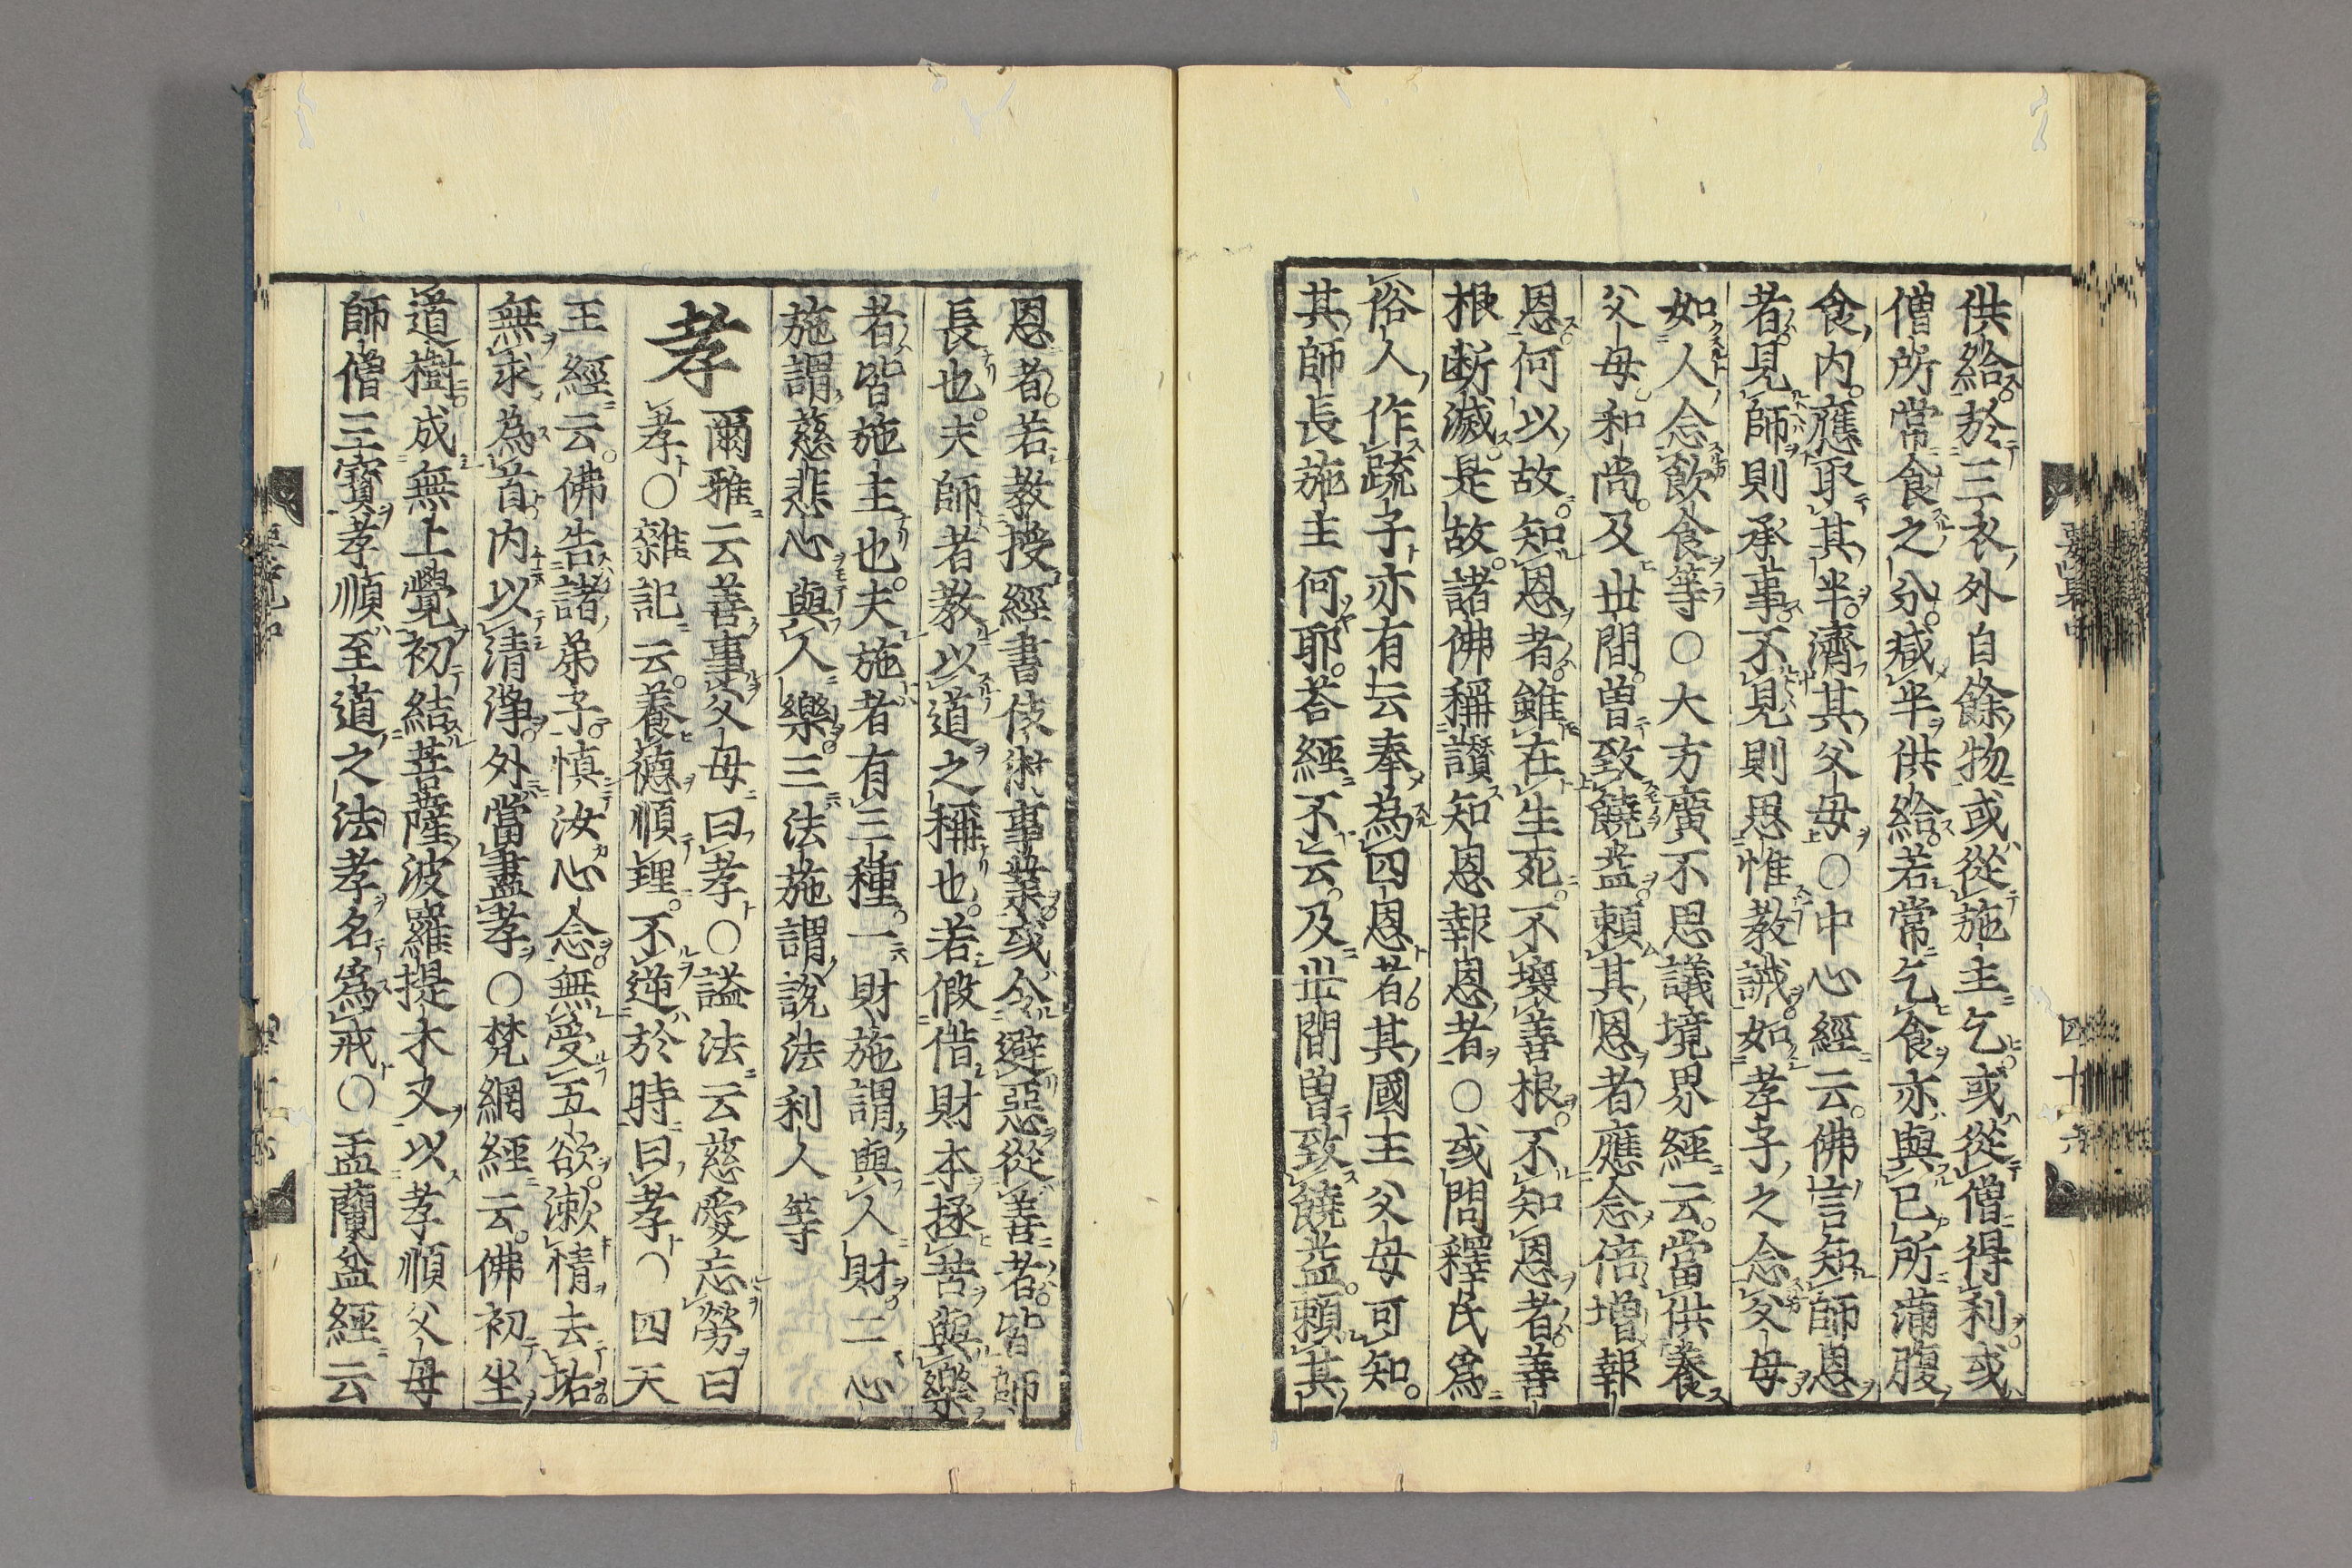 供給於三衣外自餘物或從施主乞或從僧得利或
僧所常食之分減半供給若常乞食亦與已所滿腹
食内應取其半濟其父母○中心經云佛言知師恩
者見師則承事不見則思惟教誡如孝子之念父母
如人念飲食等○大方廣不思議境界經云當供養
父母和尚及世間曽致饒益賴其恩者應念倍增報
恩何以故知恩者雖在生死不壞善根不知恩者善
根断滅是故諸佛稱讃知恩報恩者○或問釋氏爲
俗人作䟽子亦有云奉為四恩者其國主父母可知
其師長施主何耶荅經不云及世間曽致饒益賴其
恩者若教授經書伎術事業或令避惡從善者皆師
長也夫師者教以道之稱也若假借財本拯苦與樂
者皆施主也夫施者有三種一財施謂與人財二心
施謂慈悲心與人樂三法施謂說法利人等
孝
爾雅云善事父母曰孝○謚法云慈愛忘勞曰
孝○雜記云養德順理不逆於時曰孝○四天
王經云佛告諸弟子慎汝心念無受五欲漱情去垢
無求為首内以清淨外當盡孝○梵網經云佛初坐
道樹成無上覺初結菩薩波羅提木叉以孝順父母
師僧三寶孝順至道之法孝名爲戒○盂蘭盆經云